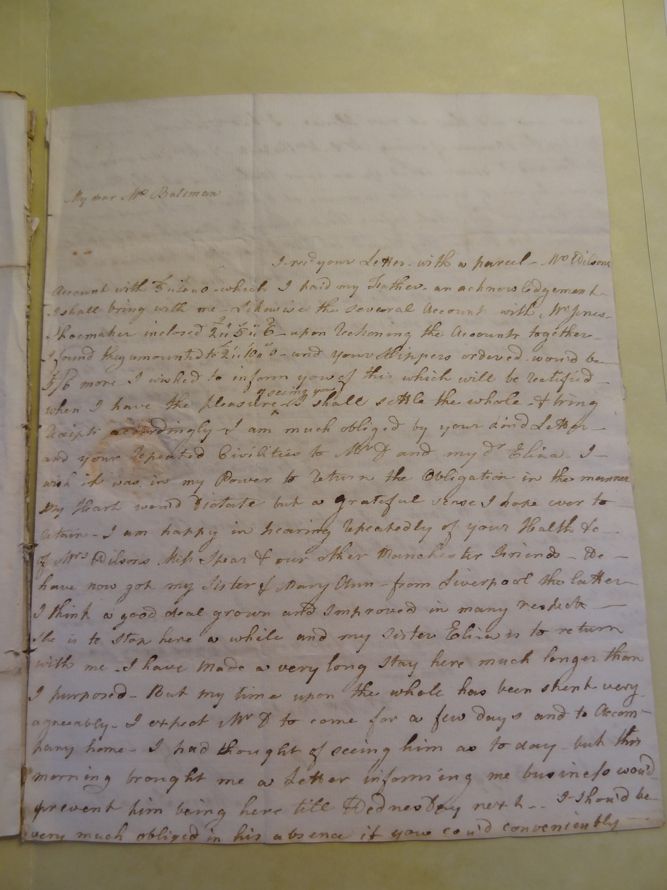 My dear Mrs Bateman
I recd your Letter with a parcel - Mrs Wilsons
Account with which I paid my Father an acknowledgement
I shall bring with me - Likewise the several Account with Wm Jones
Shoemaker inclosed 2:5:6 - upon reckoning the Accounts together
I found they amounted to and your Slippers orderd. wou'd be
5/6 more I wished to inform you of this which will be rectified
when I have the pleasure of seeing you I shall settle the whole & bring
recipts accordingly - I am much obliged by your kind Letter
and your repeated Civilities to Mr D and my dr Eliza I
wish it was in my Power to return the Obligation in the manner
My Heart would Dictate but a grateful sense I hope ever to
retain - I am happy in hearing repeatedly of your Health &c
of Mrs Wilsons Miss Spear & our other Manchester Friends - We
have now got my Sister & Mary Ann - from Liverpool the latter
I think a good deal grown and Improved in many respects
She is to stop here a while and my Sister Eliza is to return
with me - I have made a very long stay here much longer than
I purposed - But my time upon the whole has been spent very
agreeably - I expect Mr D to come for a few days and to Accom
pany home - I had thought of seeing him as to day but this
morning brought me a Letter informing me business would
prevent him being here till Wednesday next - I should be
very much obliged in his absence if you cou'd conveniently